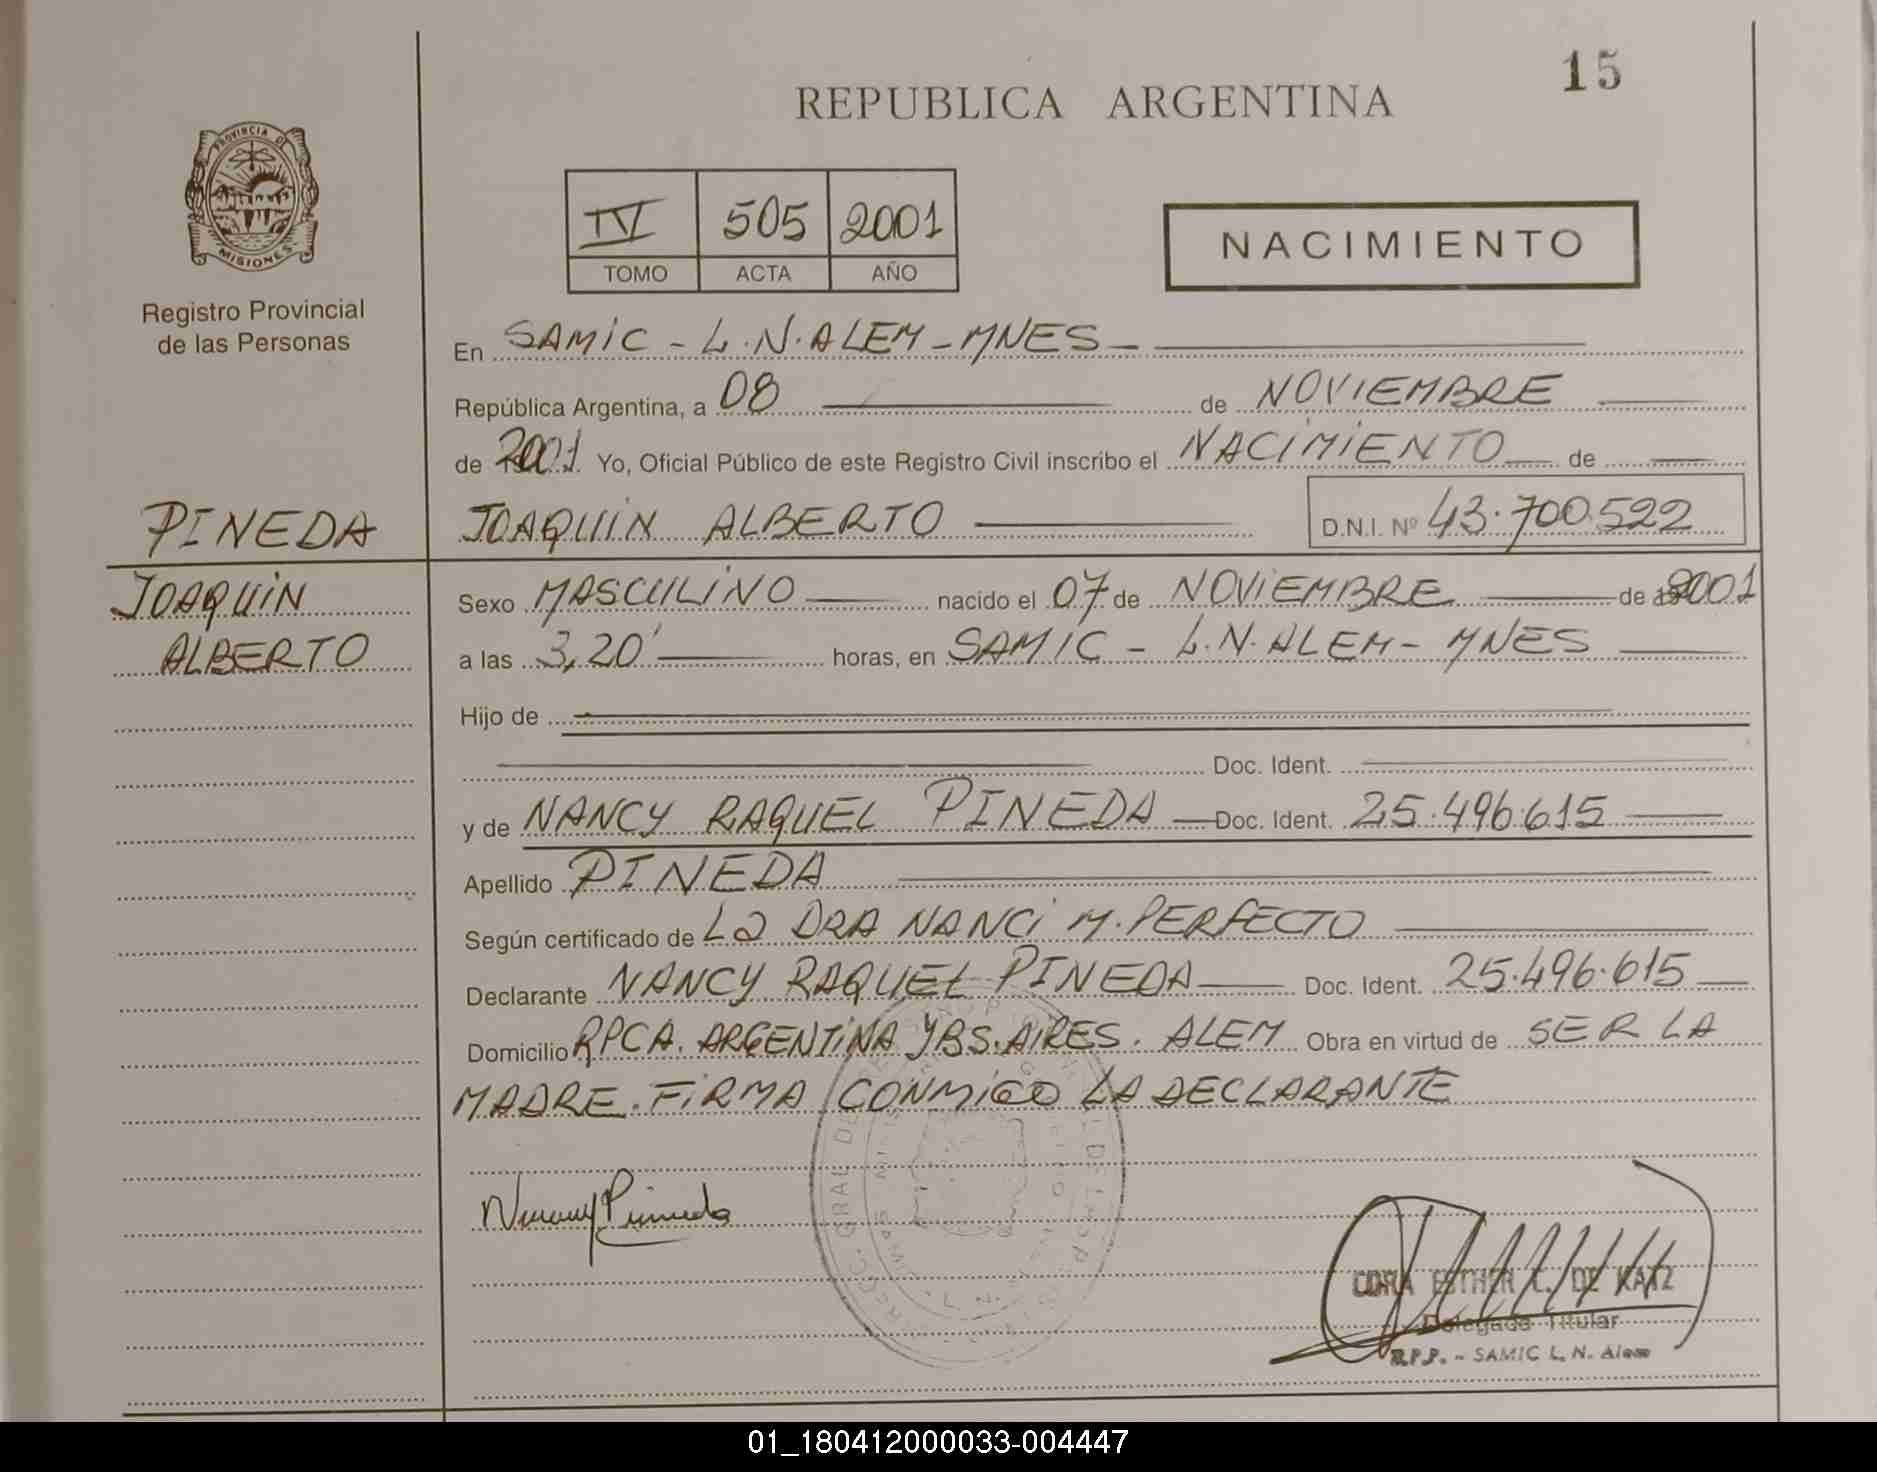 15
REPUBLICA ARGENTINA
PROVINCIA DE
MISIONES
Registro Provincial
de las Personas
IV 505 2001
TOMO ACTA AÑO
NACIMIENTO
En SAMIC - L.N. ALEM - MNES -
República Argentina, a 08 de NOVIEMBRE
de 2001 Yo, Oficial Público de este Registro Civil inscribo el NACIMIENTO de
PINEDA JOAQUIN ALBERTO D.N.I. Nº 43.700.522
JOAQUIN Sexo MASCULINO nacido el 07 de NOVIEMBRE de 2001
ALBERTO a las 3,20' horas, en SAMIC - L.N. ALEM - MNES
Hijo de
Doc. Ident.
y de NANCY RAQUEL PINEDA Doc. Ident. 25.496.615
Apellido PINEDA
Según certificado de La DRA NANCI M. PERFECTO
Declarante NANCY RAQUEL PINEDA Doc. Ident. 25.496.615
Domicilio RPCA. ARGENTINA Y BS. AIRES. ALEM Obra en virtud de SER LA
MADRE. FIRMA CONMIGO LA DECLARANTE
Nancy Pineda
CORA ESTHER C. DE KATZ
Delegada Titular
R.P.P. - SAMIC L. N. Alem
01_180412000033-004447